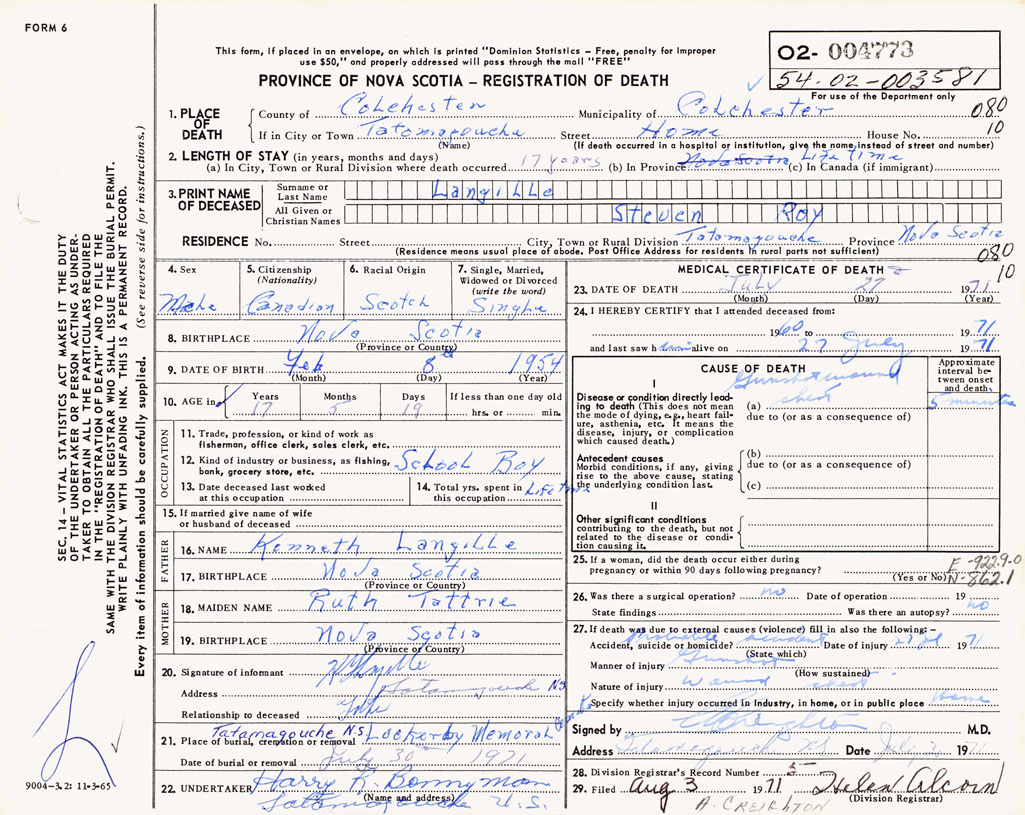 FORM 6
This form, if placed in an envelope, on which is printed "Dominion Statistics – Free, penalty for improper
use $50," and properly addressed will pass through the mail "FREE"
PROVINCE OF NOVA SCOTIA – REGISTRATION OF DEATH
O2- 004773
54-02-003581
For use of the Department only
080
10
1. PLACE OF DEATH
County of Colchester Municipality of Colchester
If in City or Town Tatamagouche Street Home House No.
(Name) (If death occurred in a hospital or institution, give the name instead of street and number)
2. LENGTH OF STAY (in years, months and days)
(a) In City, Town or Rural Division where death occurred 17 years (b) In Province Nova Scotia Life time (c) In Canada (if immigrant)
3. PRINT NAME OF DECEASED
Surname or Last Name Langille
All Given or Christian Names Steven Roy
RESIDENCE No. Street City, Town or Rural Division Tatamagouche Province Nova Scotia
(Residence means usual place of abode. Post Office Address for residents in rural parts not sufficient)
080
10
4. Sex
Male
5. Citizenship
(Nationality)
Canadian
6. Racial Origin
Scotch
7. Single, Married,
Widowed or Divorced
(write the word)
Single
8. BIRTHPLACE Nova Scotia
(Province or Country)
9. DATE OF BIRTH Feb 8th 1954
(Month) (Day) (Year)
10. AGE in
Years Months Days If less than one day old
17 5 19 hrs. or min.
OCCUPATION
11. Trade, profession, or kind of work as
fisherman, office clerk, sales clerk, etc.
12. Kind of industry or business, as fishing,
bank, grocery store, etc. School Boy
13. Date deceased last worked
at this occupation
14. Total yrs. spent in
this occupation Life time
15. If married give name of wife
or husband of deceased
FATHER
16. NAME Kenneth Langille
17. BIRTHPLACE Nova Scotia
(Province or Country)
MOTHER
18. MAIDEN NAME Ruth Tattrie
19. BIRTHPLACE Nova Scotia
(Province or Country)
20. Signature of informant
Address Tatamagouche NS
Relationship to deceased
21. Place of burial, cremation or removal Tatamagouche N.S Lockerby Memorial
Date of burial or removal July 30 1971
22. UNDERTAKER Harry R Bonnyman
(Name and address)
Tatamagouche
MEDICAL CERTIFICATE OF DEATH
23. DATE OF DEATH July 27 1971
(Month) (Day) (Year)
24. I HEREBY CERTIFY that I attended deceased from:
1960 to 1971
and last saw him alive on 27 July 1971
CAUSE OF DEATH
Approximate
interval be-
tween onset
and death
I
Disease or condition directly lead-
ing to death (This does not mean
the mode of dying, e.g., heart fail-
ure, asthenia, etc. It means the
disease, injury, or complication
which caused death.)
Gunshot wound
(a) chest 5 minutes
due to (or as a consequence of)
Antecedent causes
Morbid conditions, if any, giving
rise to the above cause, stating
the underlying condition last.
(b)
due to (or as a consequence of)
(c)
II
Other significant conditions
contributing to the death, but not
related to the disease or condi-
tion causing it.
25. If a woman, did the death occur either during
pregnancy or within 90 days following pregnancy?
(Yes or No)
E-922.9-0
N-862.1
26. Was there a surgical operation? no Date of operation 19
State findings Was there an autopsy? no
27. If death was due to external causes (violence) fill in also the following: –
Accident, suicide or homicide? Probable accident Date of injury 27 Jul 1971
(State which)
Manner of injury Gunshot
(How sustained)
Nature of injury wound chest
Specify whether injury occurred in industry, in home, or in public place Home
Signed by M.D.
Address Date July 1971
28. Division Registrar's Record Number 5
29. Filed Aug 3 1971 Helen Alcorn
(Division Registrar)
A. CREIGHTON
SEC. 14 – VITAL STATISTICS ACT MAKES IT THE DUTY
OF THE UNDERTAKER OR PERSON ACTING AS UNDER-
TAKER TO OBTAIN ALL THE PARTICULARS REQUIRED
IN THE "REGISTRATION OF DEATH" AND TO FILE THE
SAME WITH THE DIVISION REGISTRAR WHO SHALL ISSUE THE BURIAL PERMIT.
WRITE PLAINLY WITH UNFADING INK. THIS IS A PERMANENT RECORD.
Every item of information should be carefully supplied. (See reverse side for instructions.)
9004-3.2: 11-3-65